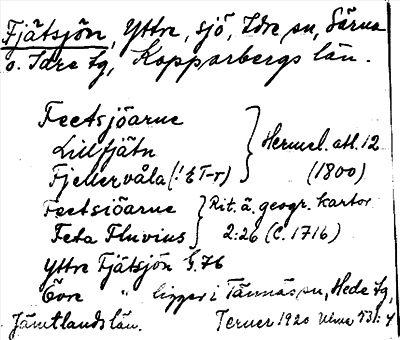 Fjätsjön, Yttre, sjö, Idre sn, Särna
o. Idre tg, Kopparbergs län.
Feetsjöarne
Lillfjätn } Hermel. atl. 12
Fjellervåla (! ξ T-r) (1800)
Feetsiöarne } Rit. ä. geogr. kartor
Feta Fluvius 2:26 (c. 1716)
Yttre Fjätsjön G. 76
Övre " ligger i Tännäs sn, Hede tg,
Jämtlands län. Terner 1920 Ulma 731:4